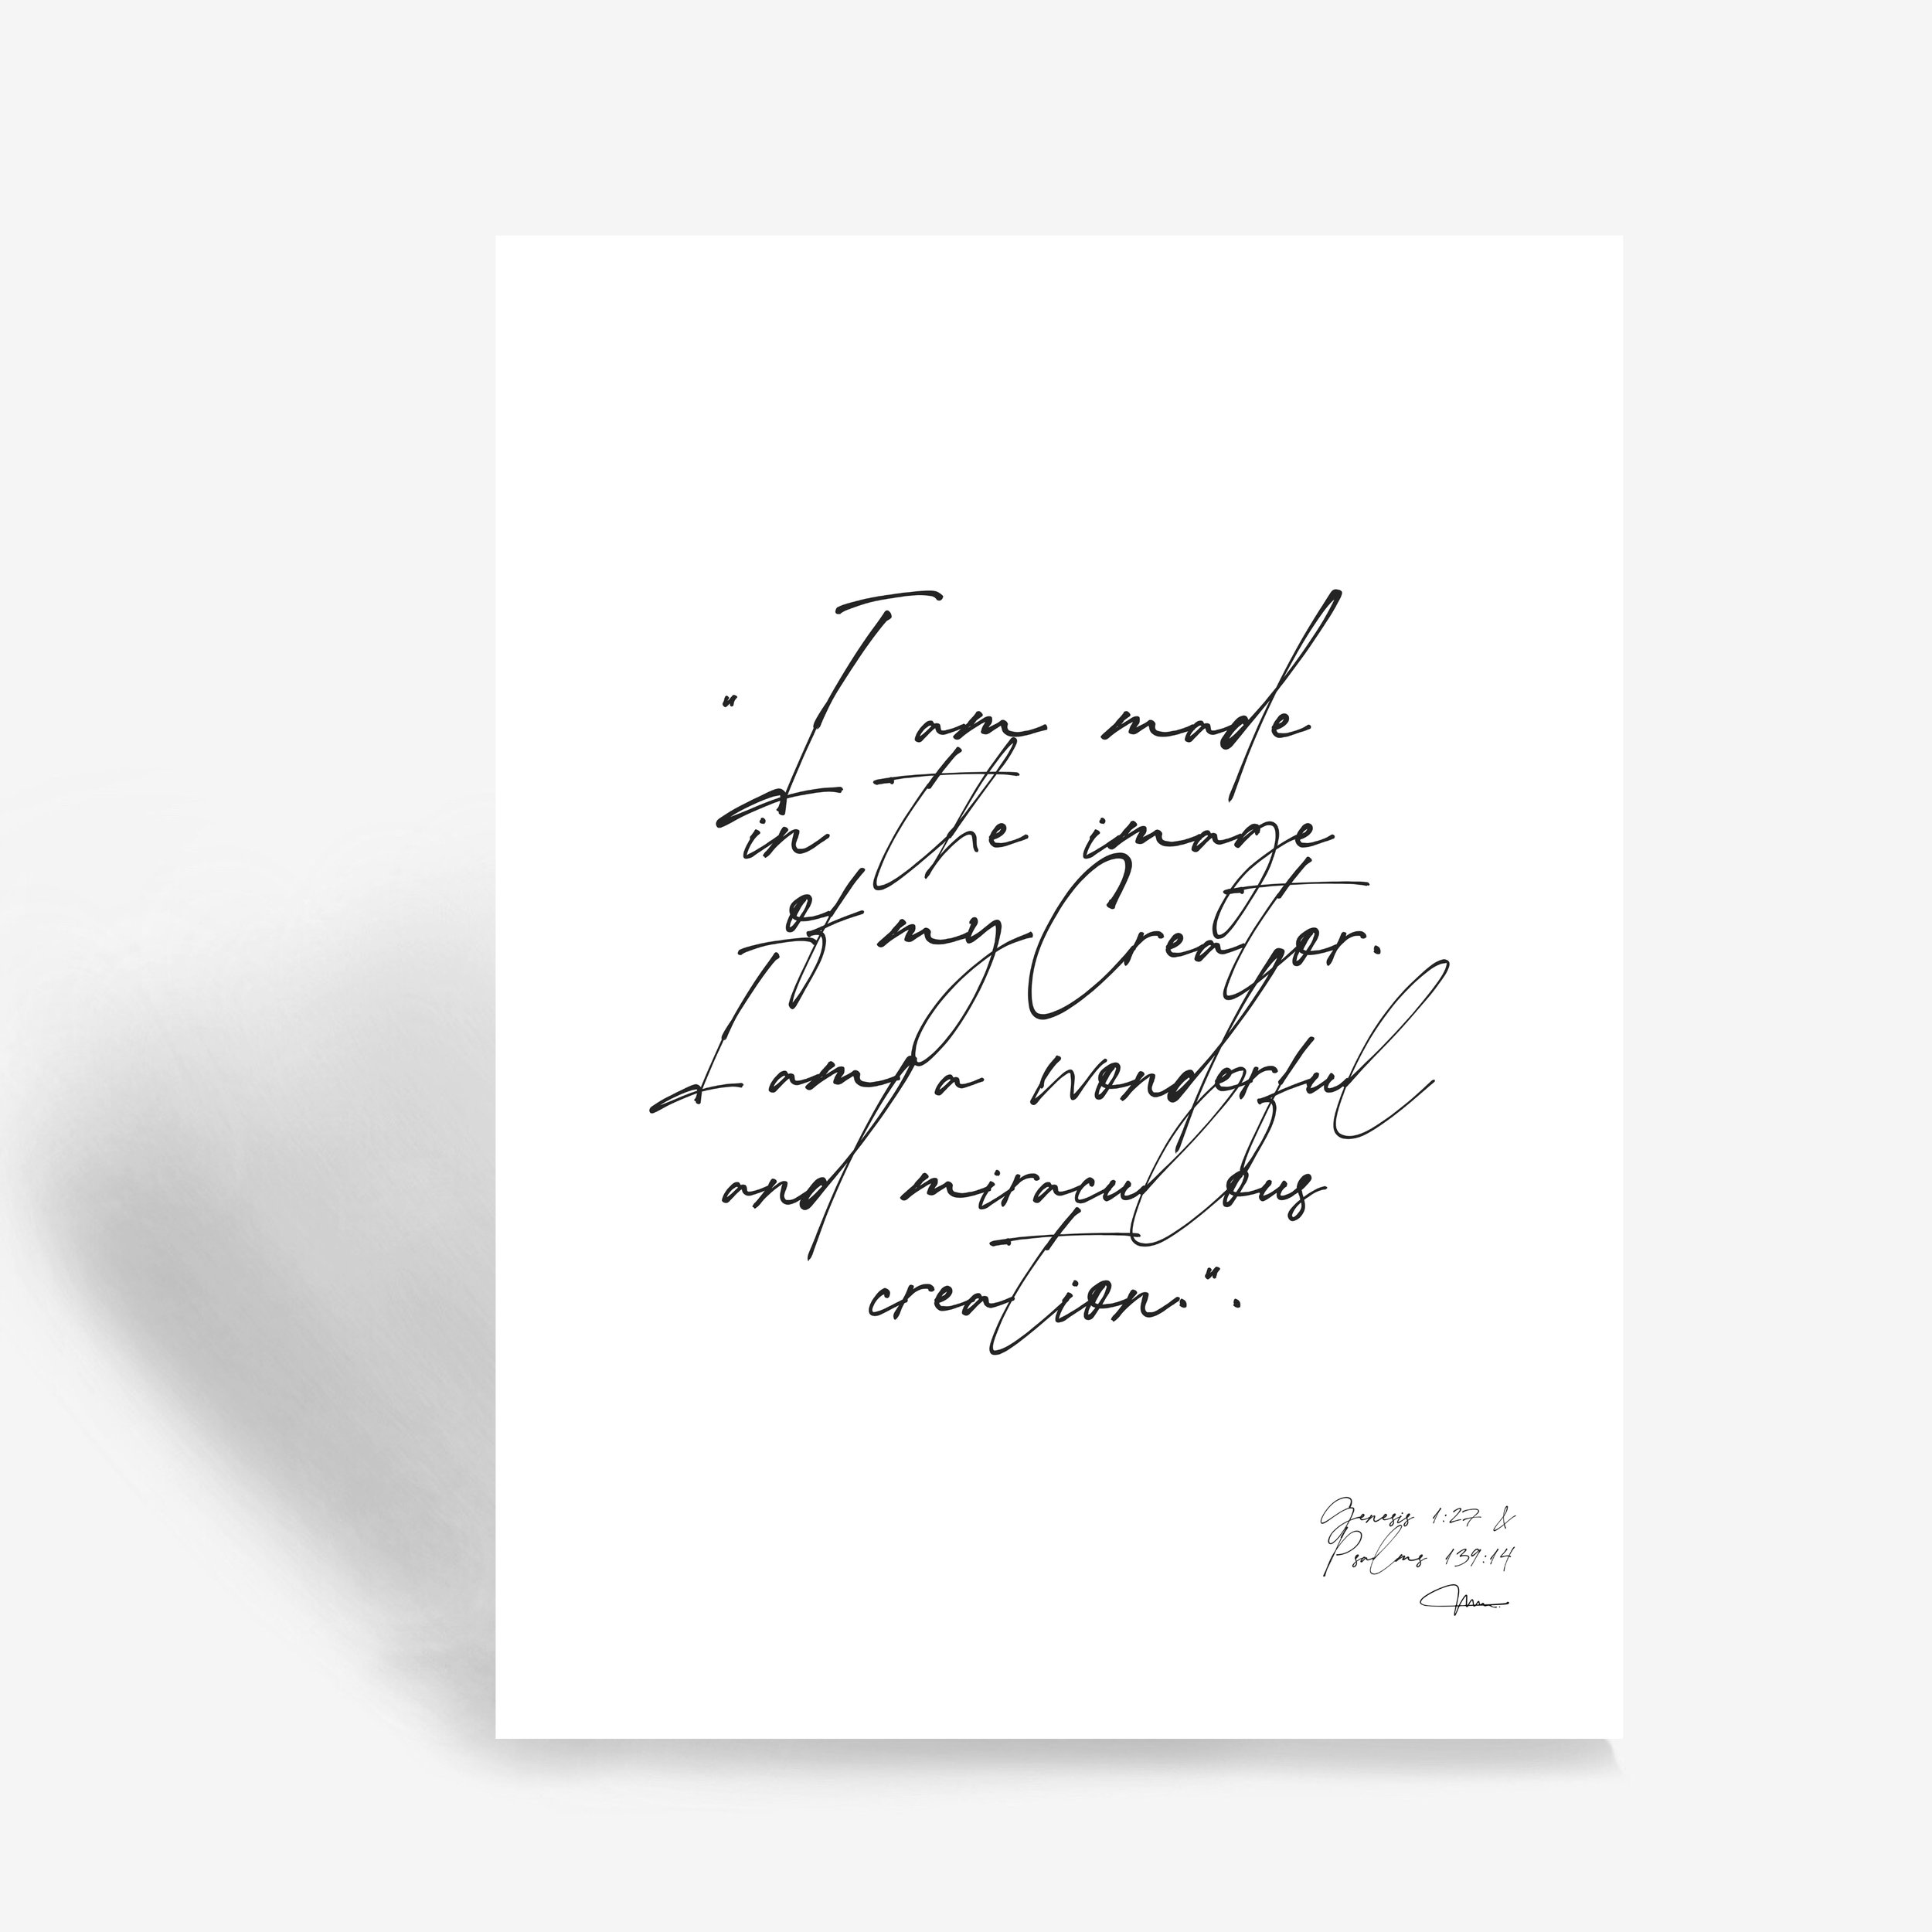 "I am made
in the image
of my Creator.
I am a wonderful
and miraculous
creation.".
Genesis 1:27 &
Psalms 139:14